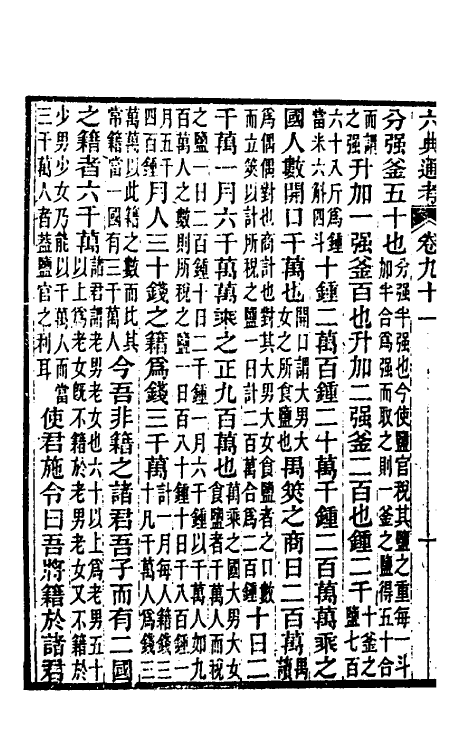 六典通考 卷九十一 十
分强釜五十也分强半强也今使鹽官稅其鹽之重每一斗加半合為强而取之則一釜之鹽得五十合
而謂之强升加一强釜百也升加二强釜二百也鍾二千十釜之鹽七百
六十八斤為鍾當米六斛四斗十鍾二萬百鍾二十萬千鍾二百萬萬乘之
國人數開口千萬也開口謂大男大女之所食鹽也禺筴之商日二百萬禺讀
為偶偶對也商計也對其大男大女食鹽者之口數而立筴以計所稅之鹽一日計二百萬合為二百鍾十日二
千萬一月六千萬萬乘之正九百萬也萬乘之國大男大女食鹽者千萬人而稅
之鹽一日二百鍾十日二千鍾一月六千鍾以千萬人如九百萬人之數則所稅之鹽一日百八十鍾十日千八百鍾一
月五千四百鍾月人三十錢之籍為錢三千萬計一月每人籍錢三十凡千萬人為錢三
萬萬以此籍之數而比其常籍當一國有三千萬人今吾非籍之諸君吾子而有二國
之籍者六千萬諸君謂老男老女也六十以上為老男五十以上為老女旣不籍於老男老女又不籍於
少男少女乃能以千萬人而當三千萬人者蓋鹽官之利耳使君施令曰吾將籍於諸君